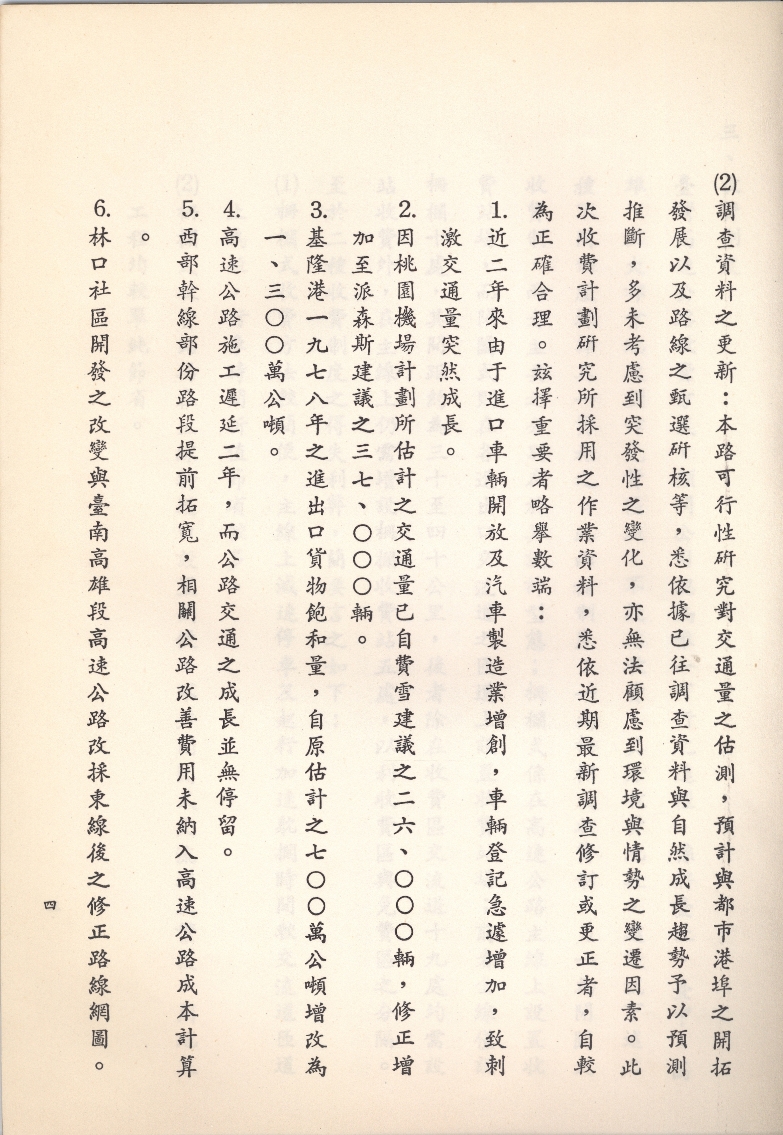 (2)調查資料之更新：本路可行性研究對交通量之估測，預計與都市港埠之開拓
發展以及路線之甄選研核等，悉依據已往調查資料與自然成長趨勢予以預測
推斷，多未考慮到突發性之變化，亦無法顧慮到環境與情勢之變遷因素。此
次收費計劃研究所採用之作業資料，悉依近期最新調查修訂或更正者，自較
為正確合理。茲擇重要者略舉數端：
1.近二年來由于進口車輛開放及汽車製造業增創，車輛登記急遽增加，致刺
激交通量突然成長。
2.因桃園機場計劃所估計之交通量已自費雪建議之二六、〇〇〇輛，修正增
加至派森斯建議之三七、〇〇〇輛。
3.基隆港一九七八年之進出口貨物飽和量，自原估計之七〇〇萬公噸增改為
一、三〇〇萬公噸。
4.高速公路施工遲延二年，而公路交通之成長並無停留。
5.西部幹線部份路段提前拓寬，相關公路改善費用未納入高速公路成本計算
。
6.林口社區開發之改變與臺南高雄段高速公路改採東線後之修正路線網圖。
四